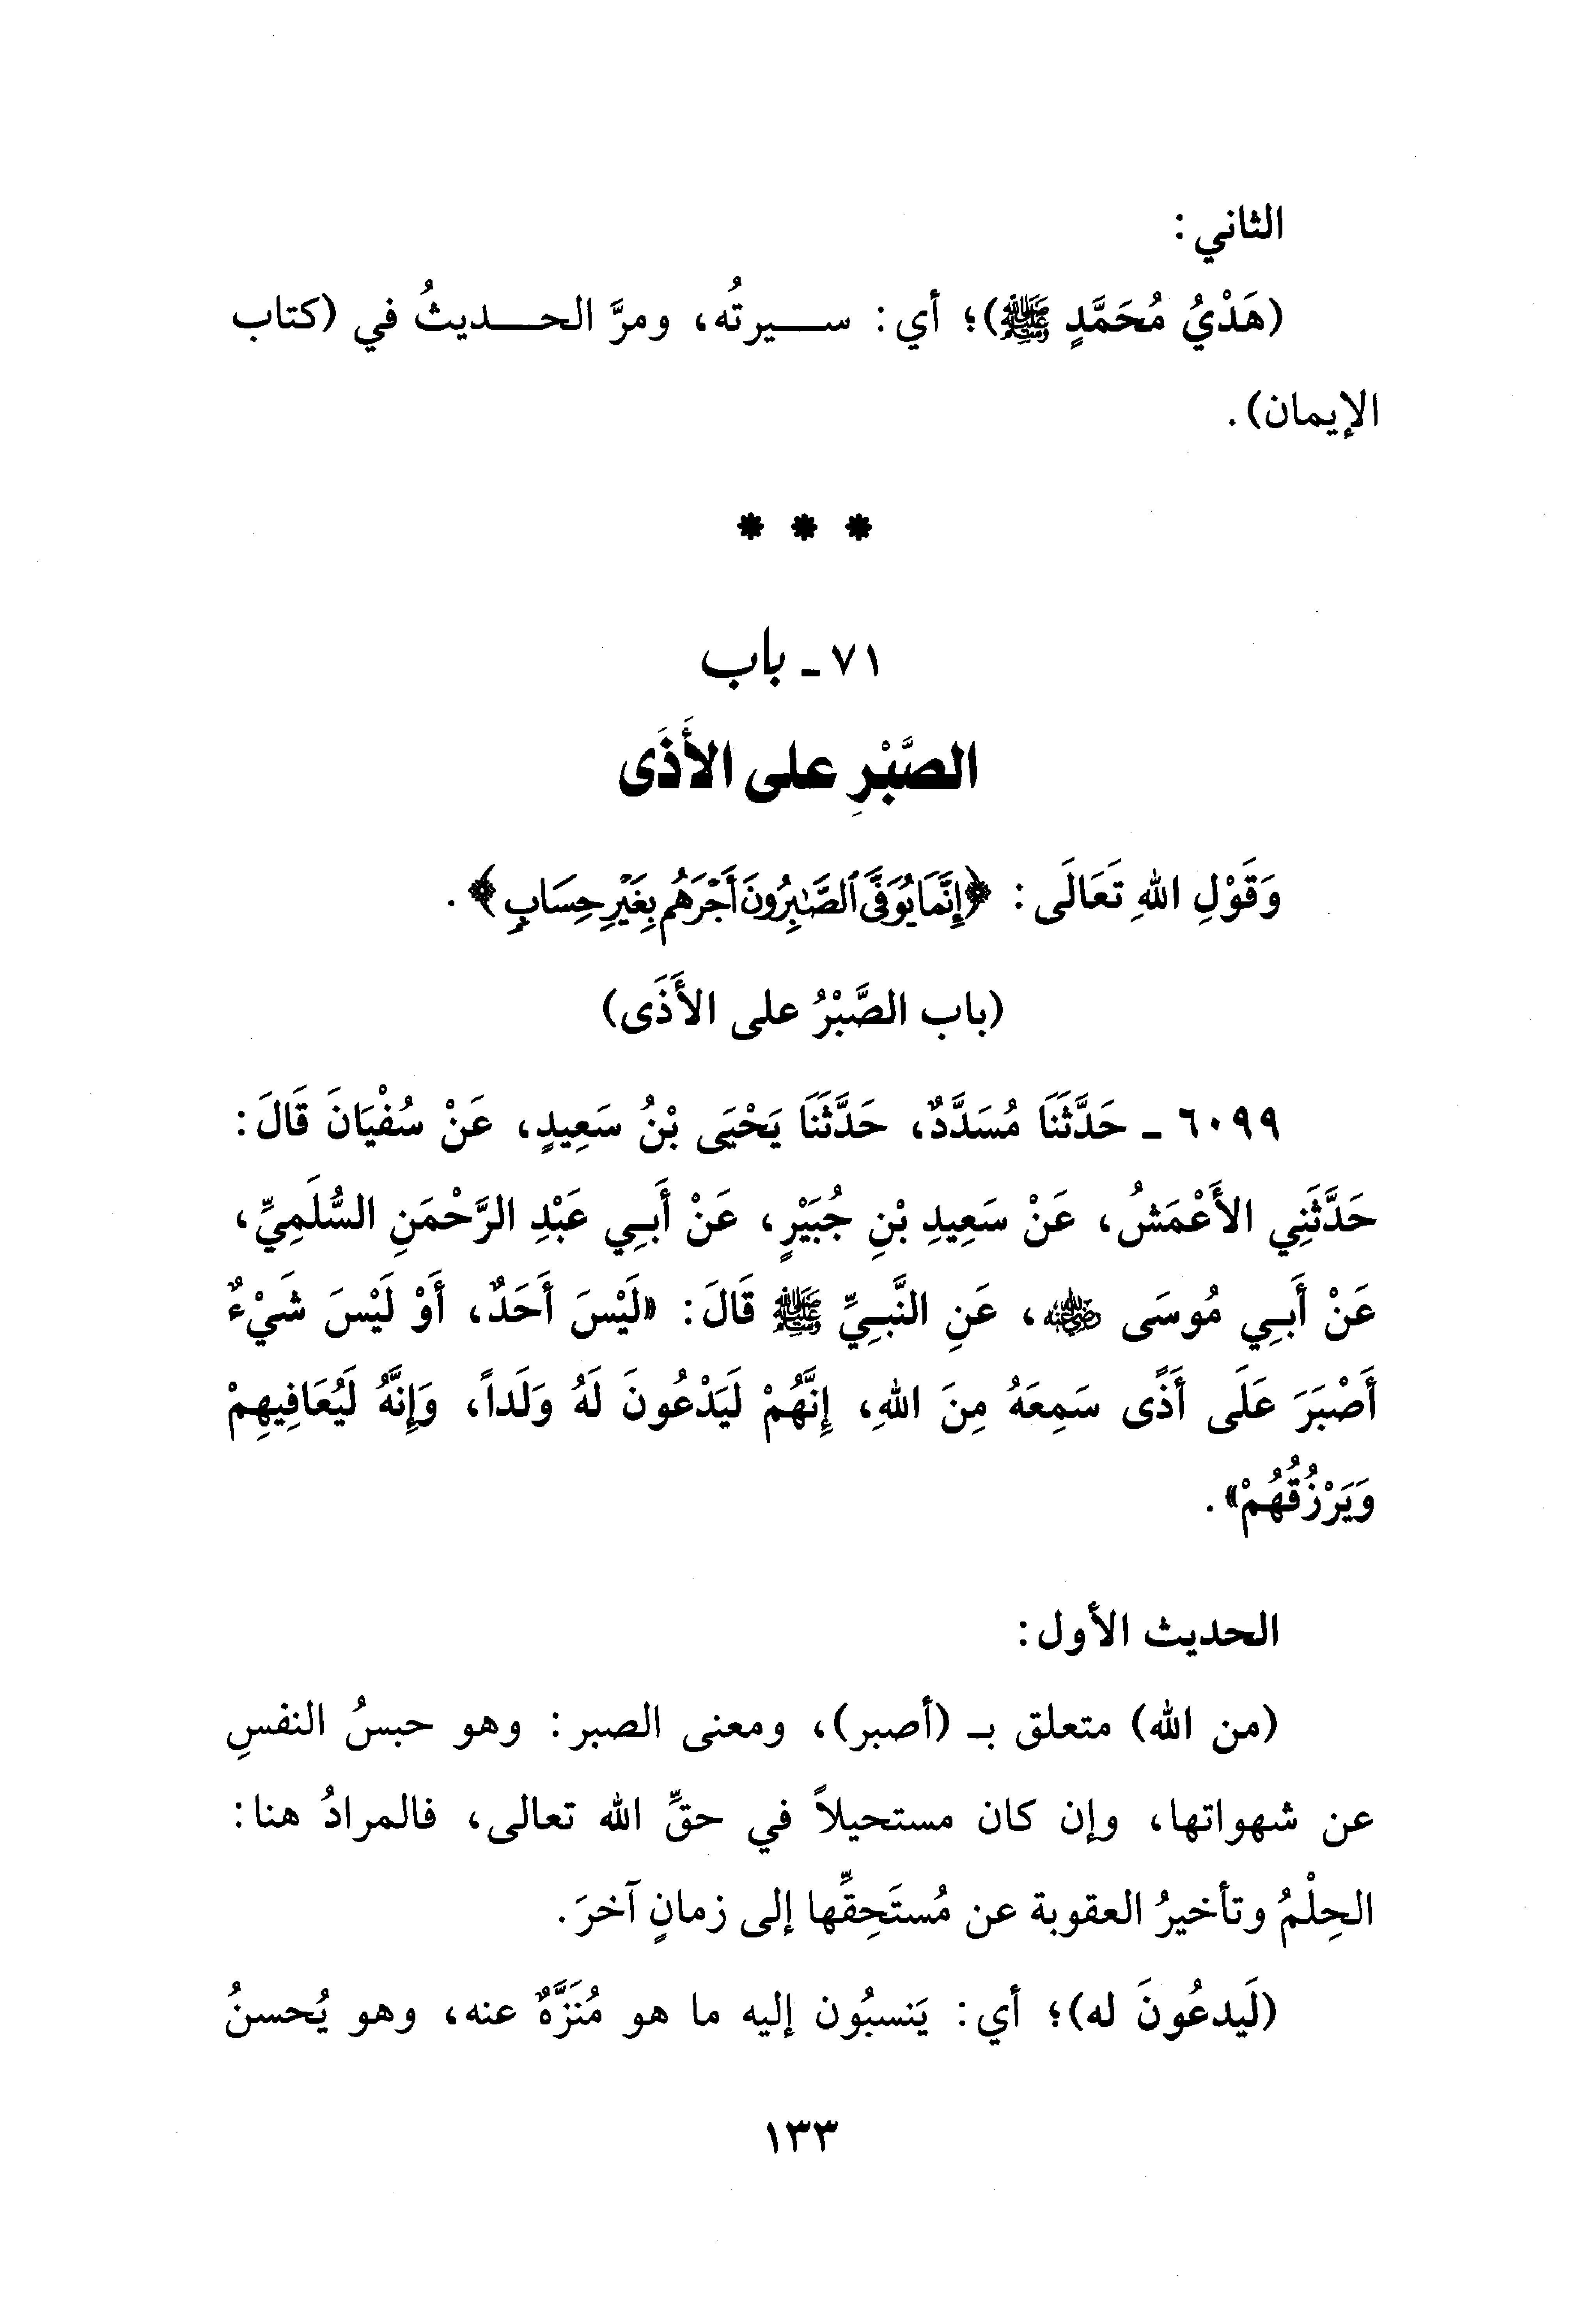 الثاني:
(هَدْيُ مُحَمَّدٍ ﷺ)؛ أي: سيرتُه، ومرَّ الحديثُ في (كتاب
الإيمان).
* * *
٧١ - باب
الصَّبْرِ على الأَذَى
وَقَوْلِ اللهِ تَعَالَى: ﴿إِنَّمَا يُوَفَّى ٱلصَّٰبِرُونَ أَجْرَهُم بِغَيْرِ حِسَابٍ﴾.
(باب الصَّبْرُ على الأَذَى)
٦٠٩٩ - حَدَّثَنَا مُسَدَّدٌ، حَدَّثَنَا يَحْيَى بْنُ سَعِيدٍ، عَنْ سُفْيَانَ قَالَ:
حَدَّثَنِي الأَعْمَشُ، عَنْ سَعِيدِ بْنِ جُبَيْرٍ، عَنْ أَبِي عَبْدِ الرَّحْمَنِ السُّلَمِيِّ،
عَنْ أَبِي مُوسَى رضي الله عنه، عَنِ النَّبِيِّ ﷺ قَالَ: «لَيْسَ أَحَدٌ، أَوْ لَيْسَ شَيْءٌ
أَصْبَرَ عَلَى أَذًى سَمِعَهُ مِنَ اللهِ، إِنَّهُمْ لَيَدْعُونَ لَهُ وَلَداً، وَإِنَّهُ لَيُعَافِيهِمْ
وَيَرْزُقُهُمْ».
الحديث الأول:
(من الله) متعلق بـ (أصبر)، ومعنى الصبر: وهو حبسُ النفسِ
عن شهواتها، وإن كان مستحيلاً في حقِّ الله تعالى، فالمرادُ هنا:
الحِلْمُ وتأخيرُ العقوبة عن مُستَحِقِّها إلى زمانٍ آخرَ.
(لَيدعُونَ له)؛ أي: يَنسبُون إليه ما هو مُنَزَّهٌ عنه، وهو يُحسنُ
١٣٣